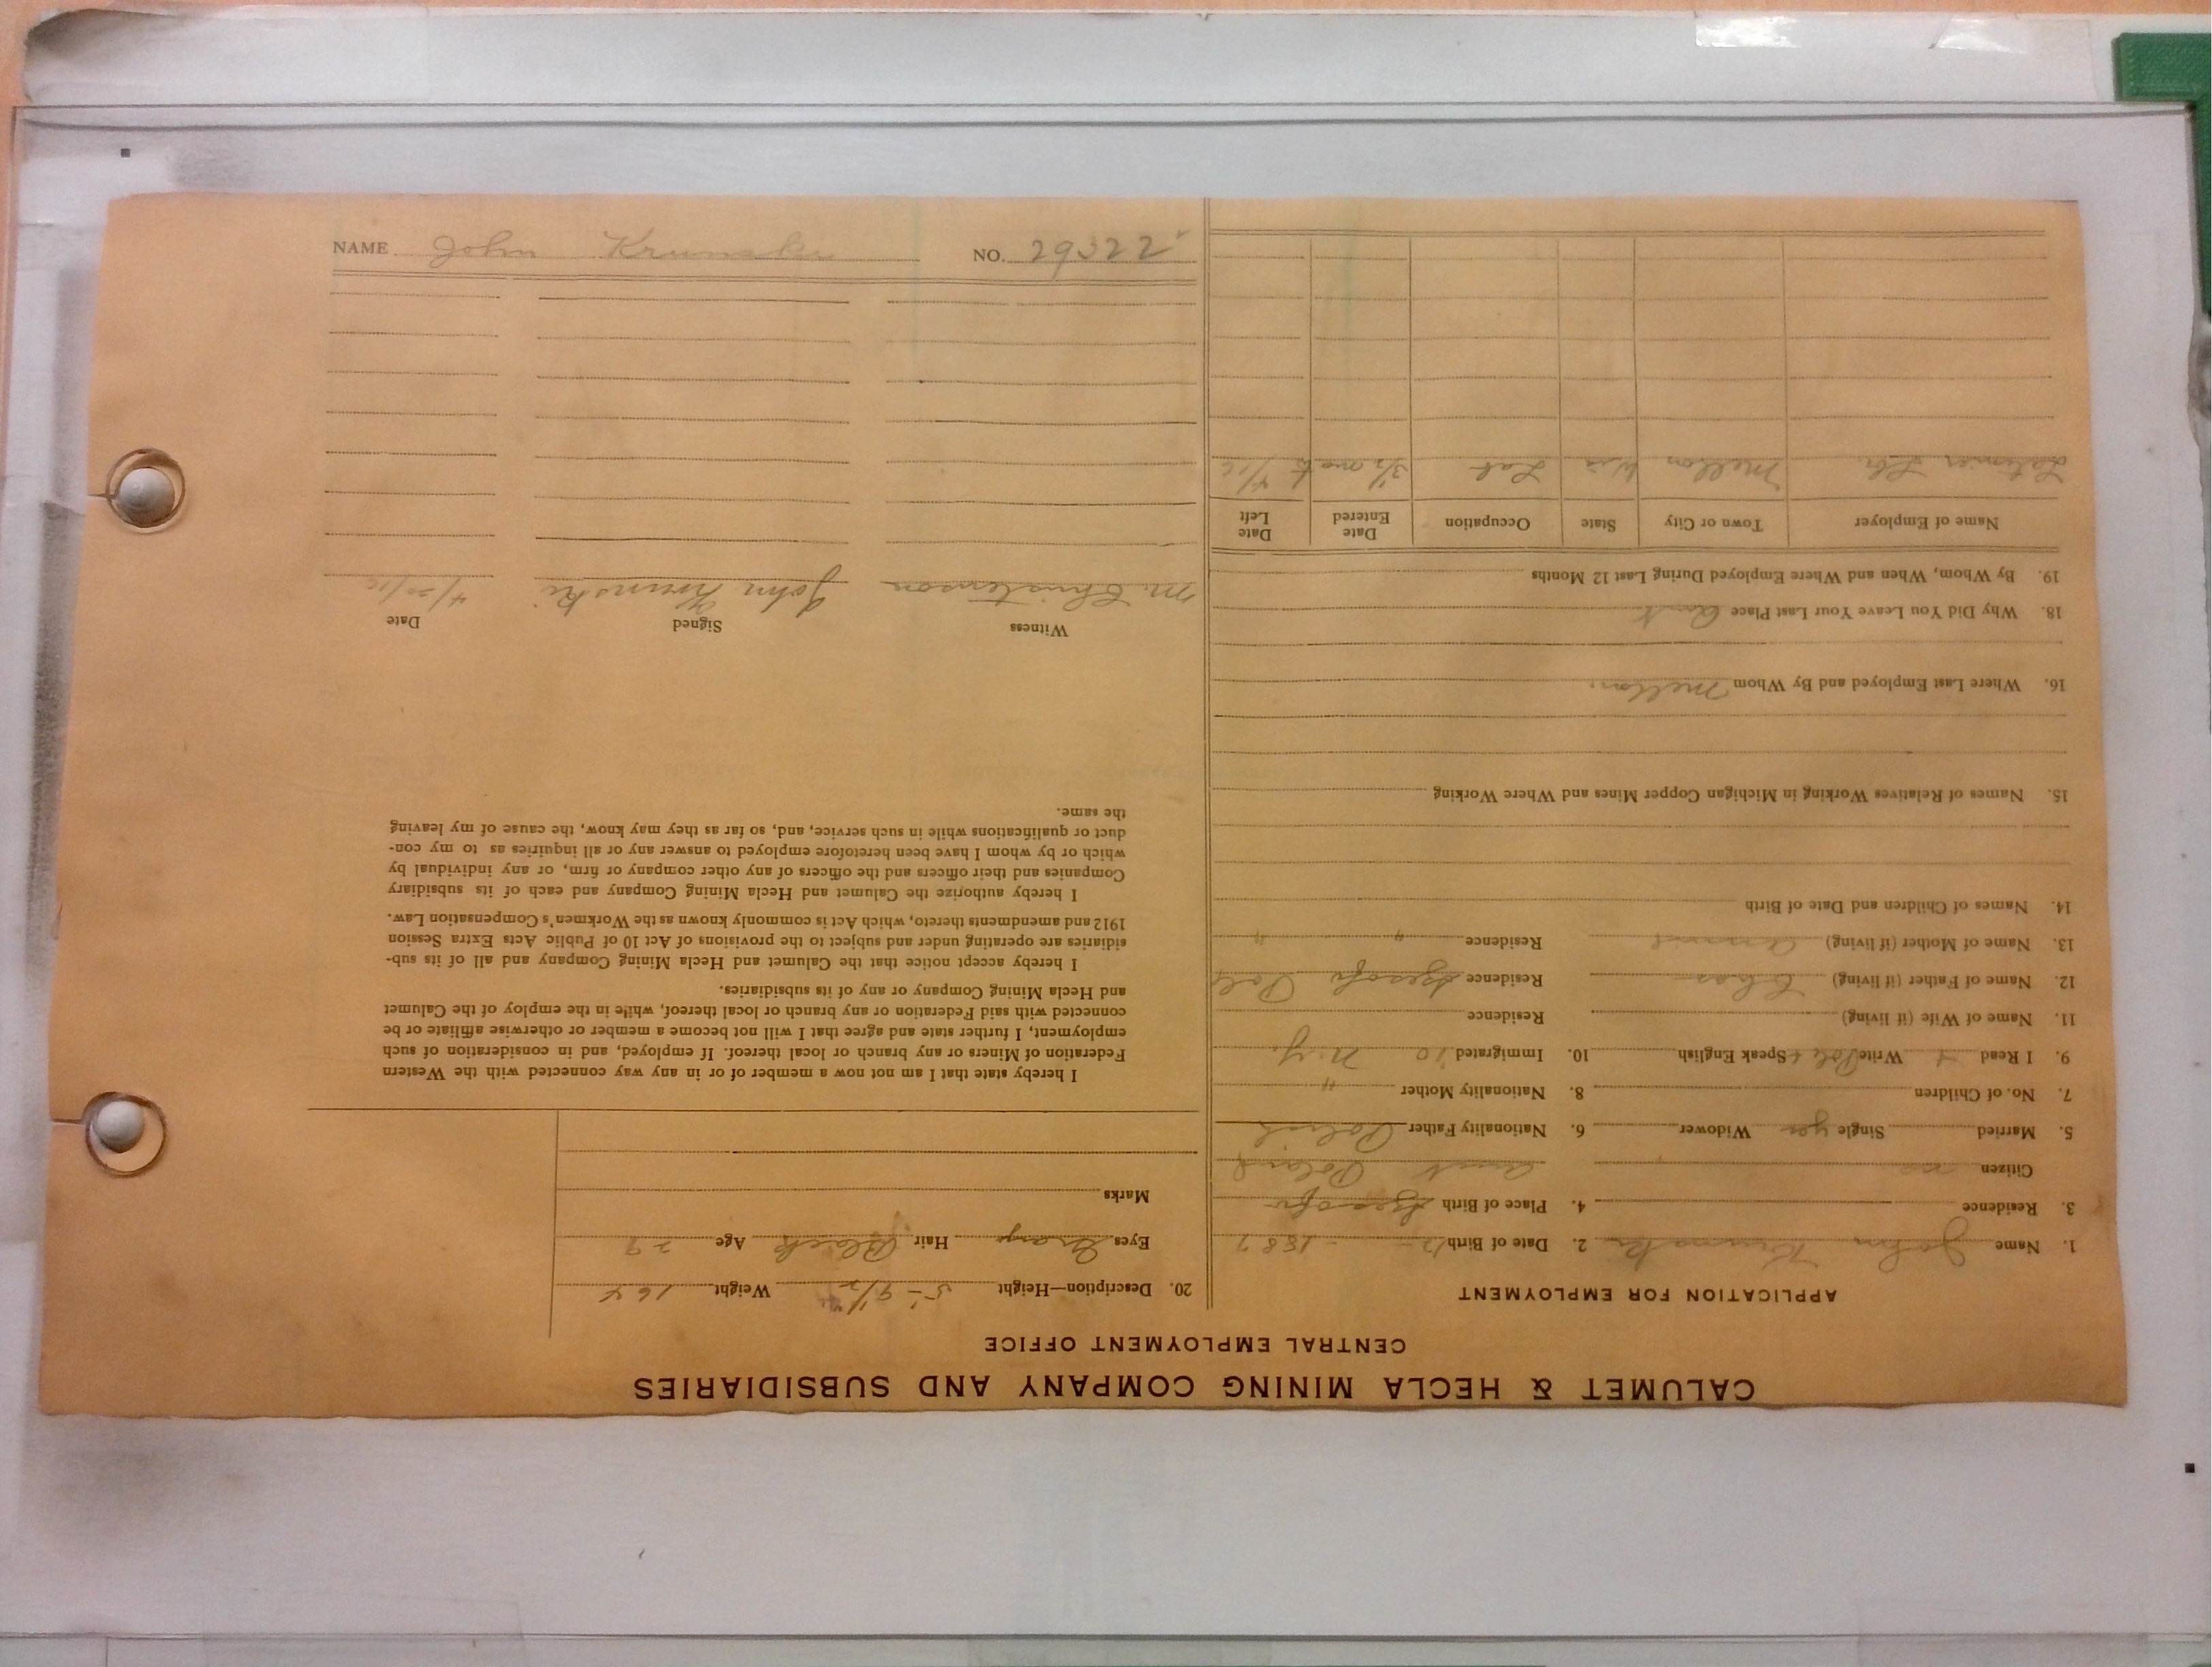 CALUMET & HECLA MINING COMPANY AND SUBSIDIARIES
CENTRAL EMPLOYMENT OFFICE
APPLICATION FOR EMPLOYMENT
1. Name John Krunski 2. Date of Birth 1887
3. Residence 4. Place of Birth
Citizen no Poland
5. Married Single yes Widower 6. Nationality Father Polish
7. No. of Children 8. Nationality Mother "
9. I Read + Write Pol + Speak English 10. Immigrated '10 N.Y.
11. Name of Wife (if living) Residence
12. Name of Father (if living) Chas Residence Pol
13. Name of Mother (if living) Residence " "
14. Names of Children and Date of Birth
15. Names of Relatives Working in Michigan Copper Mines and Where Working
16. Where Last Employed and By Whom Mellon.
18. Why Did You Leave Your Last Place Quit
19. By Whom, When and Where Employed During Last 12 Months
Name of Employer Town or City State Occupation Date Entered Date Left
Mellon Wis Lab 4/16
20. Description—Height 5-9 1/2 Weight 164
Eyes Gray Hair Black Age 29
Marks
I hereby state that I am not now a member of or in any way connected with the Western
Federation of Miners or any branch or local thereof. If employed, and in consideration of such
employment, I further state and agree that I will not become a member or otherwise affiliate or be
connected with said Federation or any branch or local thereof, while in the employ of the Calumet
and Hecla Mining Company or any of its subsidiaries.
I hereby accept notice that the Calumet and Hecla Mining Company and all of its sub-
sidiaries are operating under and subject to the provisions of Act 10 of Public Acts Extra Session
1912 and amendments thereto, which Act is commonly known as the Workmen's Compensation Law.
I hereby authorize the Calumet and Hecla Mining Company and each of its subsidiary
Companies and their officers and the officers of any other company or firm, or any individual by
which or by whom I have been heretofore employed to answer any or all inquiries as to my con-
duct or qualifications while in such service, and, so far as they may know, the cause of my leaving
the same.
Witness Signed Date
M. Christenson John Krunski 4/20/16
NAME John Krunski NO. 29322